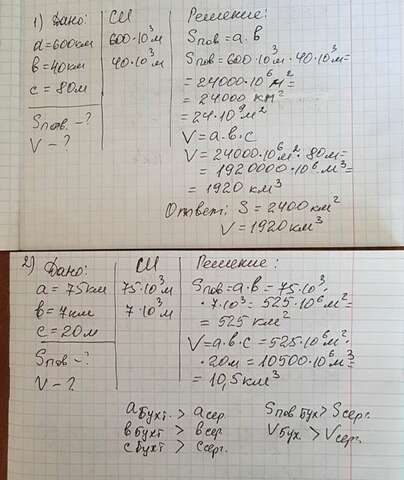 1) Дано:
a=600км
b=40км
c=80м
Sпов.-?
V-?
СИ
600·10³м
40·10³м
Решение:
Sпов=a·b
Sпов=600·10³м·40·10³м=
=24000·10⁶м²=
=24000 км²
=24·10⁹м²
V=a·b·c
V=24000·10⁶м²·80м=
=1920000·10⁶м³=
=1920 км³
Ответ: S=2400км²
V=1920км³
2) Дано:
a=75км
b=7км
c=20м
Sпов-?
V-?
СИ
75·10³м
7·10³м
Решение:
Sпов=a·b=75·10³·
·7·10³=525·10⁶м²=
=525 км²
V=a·b·c=525·10⁶м²·
·20м=10500·10⁶м³=
=10,5км³
aбухт.>aсер.
bбухт>bсер.
cбухт>cсерг.
Sпов бух>Sсерг.
Vбух.>Vсерг.